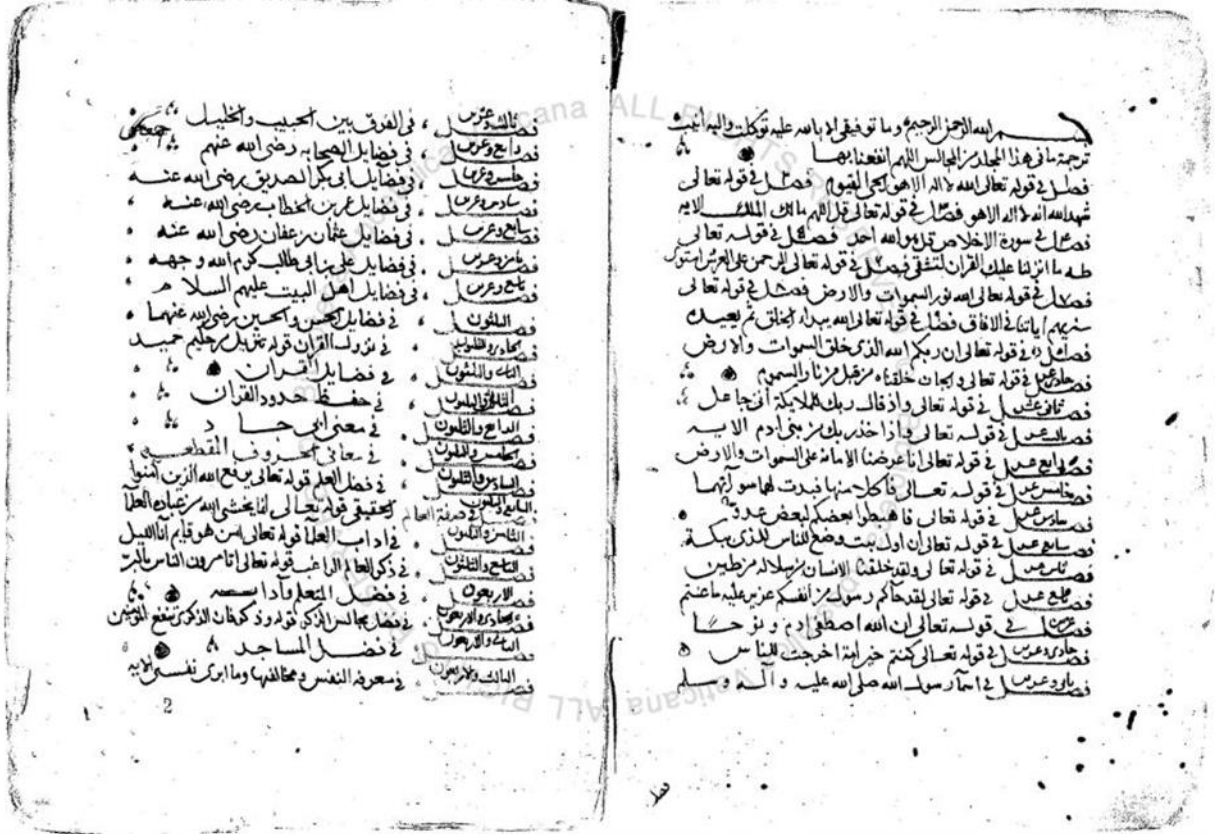 بسم الله الرحمن الرحيم وما توفيقي الا بالله عليه توكلت واليه انيب
ترجمة ما في هذا المجلد من المجالس اللهم انفعنا بها
فصل في قوله تعالى الله لا اله الا هو الحي القيوم فصل في قوله تعالى
شهد الله انه لا اله الا هو فصل في قوله تعالى قل اللهم مالك الملك الايه
فصل في سورة الاخلاص قل هو الله احد فصل في قوله تعالى
طه ما انزلنا عليك القران لتشقى فصل في قوله تعالى الرحمن على العرش استوى
فصل في قوله تعالى الله نور السموات والارض فصل في قوله تعالى
سنريهم اياتنا في الافاق فصل في قوله تعالى الله يبداء الخلق ثم يعيده
فصل في قوله تعالى ان ربكم الله الذي خلق السموات والارض
فصل حادي عشر في قوله تعالى والجان خلقناه من قبل من نار السموم
فصل ثاني عشر في قوله تعالى واذ قال ربك للملايكة اني جاعل
فصل ثالث عشر في قوله تعالى واذ اخذ ربك من بني ادم الايه
فصل رابع عشر في قوله تعالى انا عرضنا الامانه على السموات والارض
فصل خامس عشر في قوله تعالى فاكلا منها فبدت لهما سوآتهما
فصل سادس عشر في قوله تعالى فاهبطوا بعضكم لبعض عدو
فصل سابع عشر في قوله تعالى ان اول بيت وضع للناس للذي ببكة
فصل ثامن عشر في قوله تعالى ولقد خلقنا الانسان من سلاله من طين
فصل في قوله تعالى لقد جاكم رسول من انفسكم عزيز عليه ما عنتم
فصل عشرون في قوله تعالى ان الله اصطفى ادم ونوحا
فصل حادي وعشرون في قوله تعالى كنتم خير امة اخرجت للناس
فصل ثاني وعشرون في اسمآ رسول الله صلى الله عليه وآله وسلم
فصل ثالث وعشرون في الفرق بين الحبيب والخليل
فصل رابع وعشرون في فضايل الصحابه رضي الله عنهم
فصل خامس وعشرون في فضايل ابي بكر الصديق رضي الله عنه
فصل سادس وعشرون في فضايل عمر بن الخطاب رضي الله عنه
فصل سابع وعشرون في فضايل عثمان بن عفان رضي الله عنه
فصل ثامن وعشرون في فضايل علي بن ابي طالب كرم الله وجهه
فصل تاسع وعشرون في فضايل اهل البيت عليهم السلام
فصل الثلثون في فضايل الحسن والحسين رضي الله عنهما
فصل الحادي والثلثون في نزول القران قوله تنزيل من حكيم حميد
فصل الثاني والثلثون في فضايل القران
فصل الثالث والثلثون في حفظ حدود القران
فصل الرابع والثلثون في معنى ابي جاد
فصل الخامس والثلثون في معاني الحروف المقطعه
فصل السادس والثلثون في فضل العلم قوله تعالى يرفع الله الذين آمنوا
فصل السابع والثلثون في صفة العالم الحقيقي قوله تعالى انما يخشى الله من عباده العلمآ
فصل الثامن والثلثون في اداب العلمآ قوله تعالى امن هو قانت آنا الليل
فصل التاسع والثلثون في ذكر العالم الراغب قوله تعالى اتامرون الناس بالبر
فصل الاربعون في فضل المتعلم وآدابه
فصل الحادي والاربعون في فضل مجالس الذكر قوله وذكر فان الذكرى تنفع المومنين
فصل الثاني والاربعون في فضل المساجد
فصل الثالث والاربعون في معرفة النفس ومخالفتها وما ابري نفسي الايه
1 2
Vaticana ALL RIGHTS RESERVED